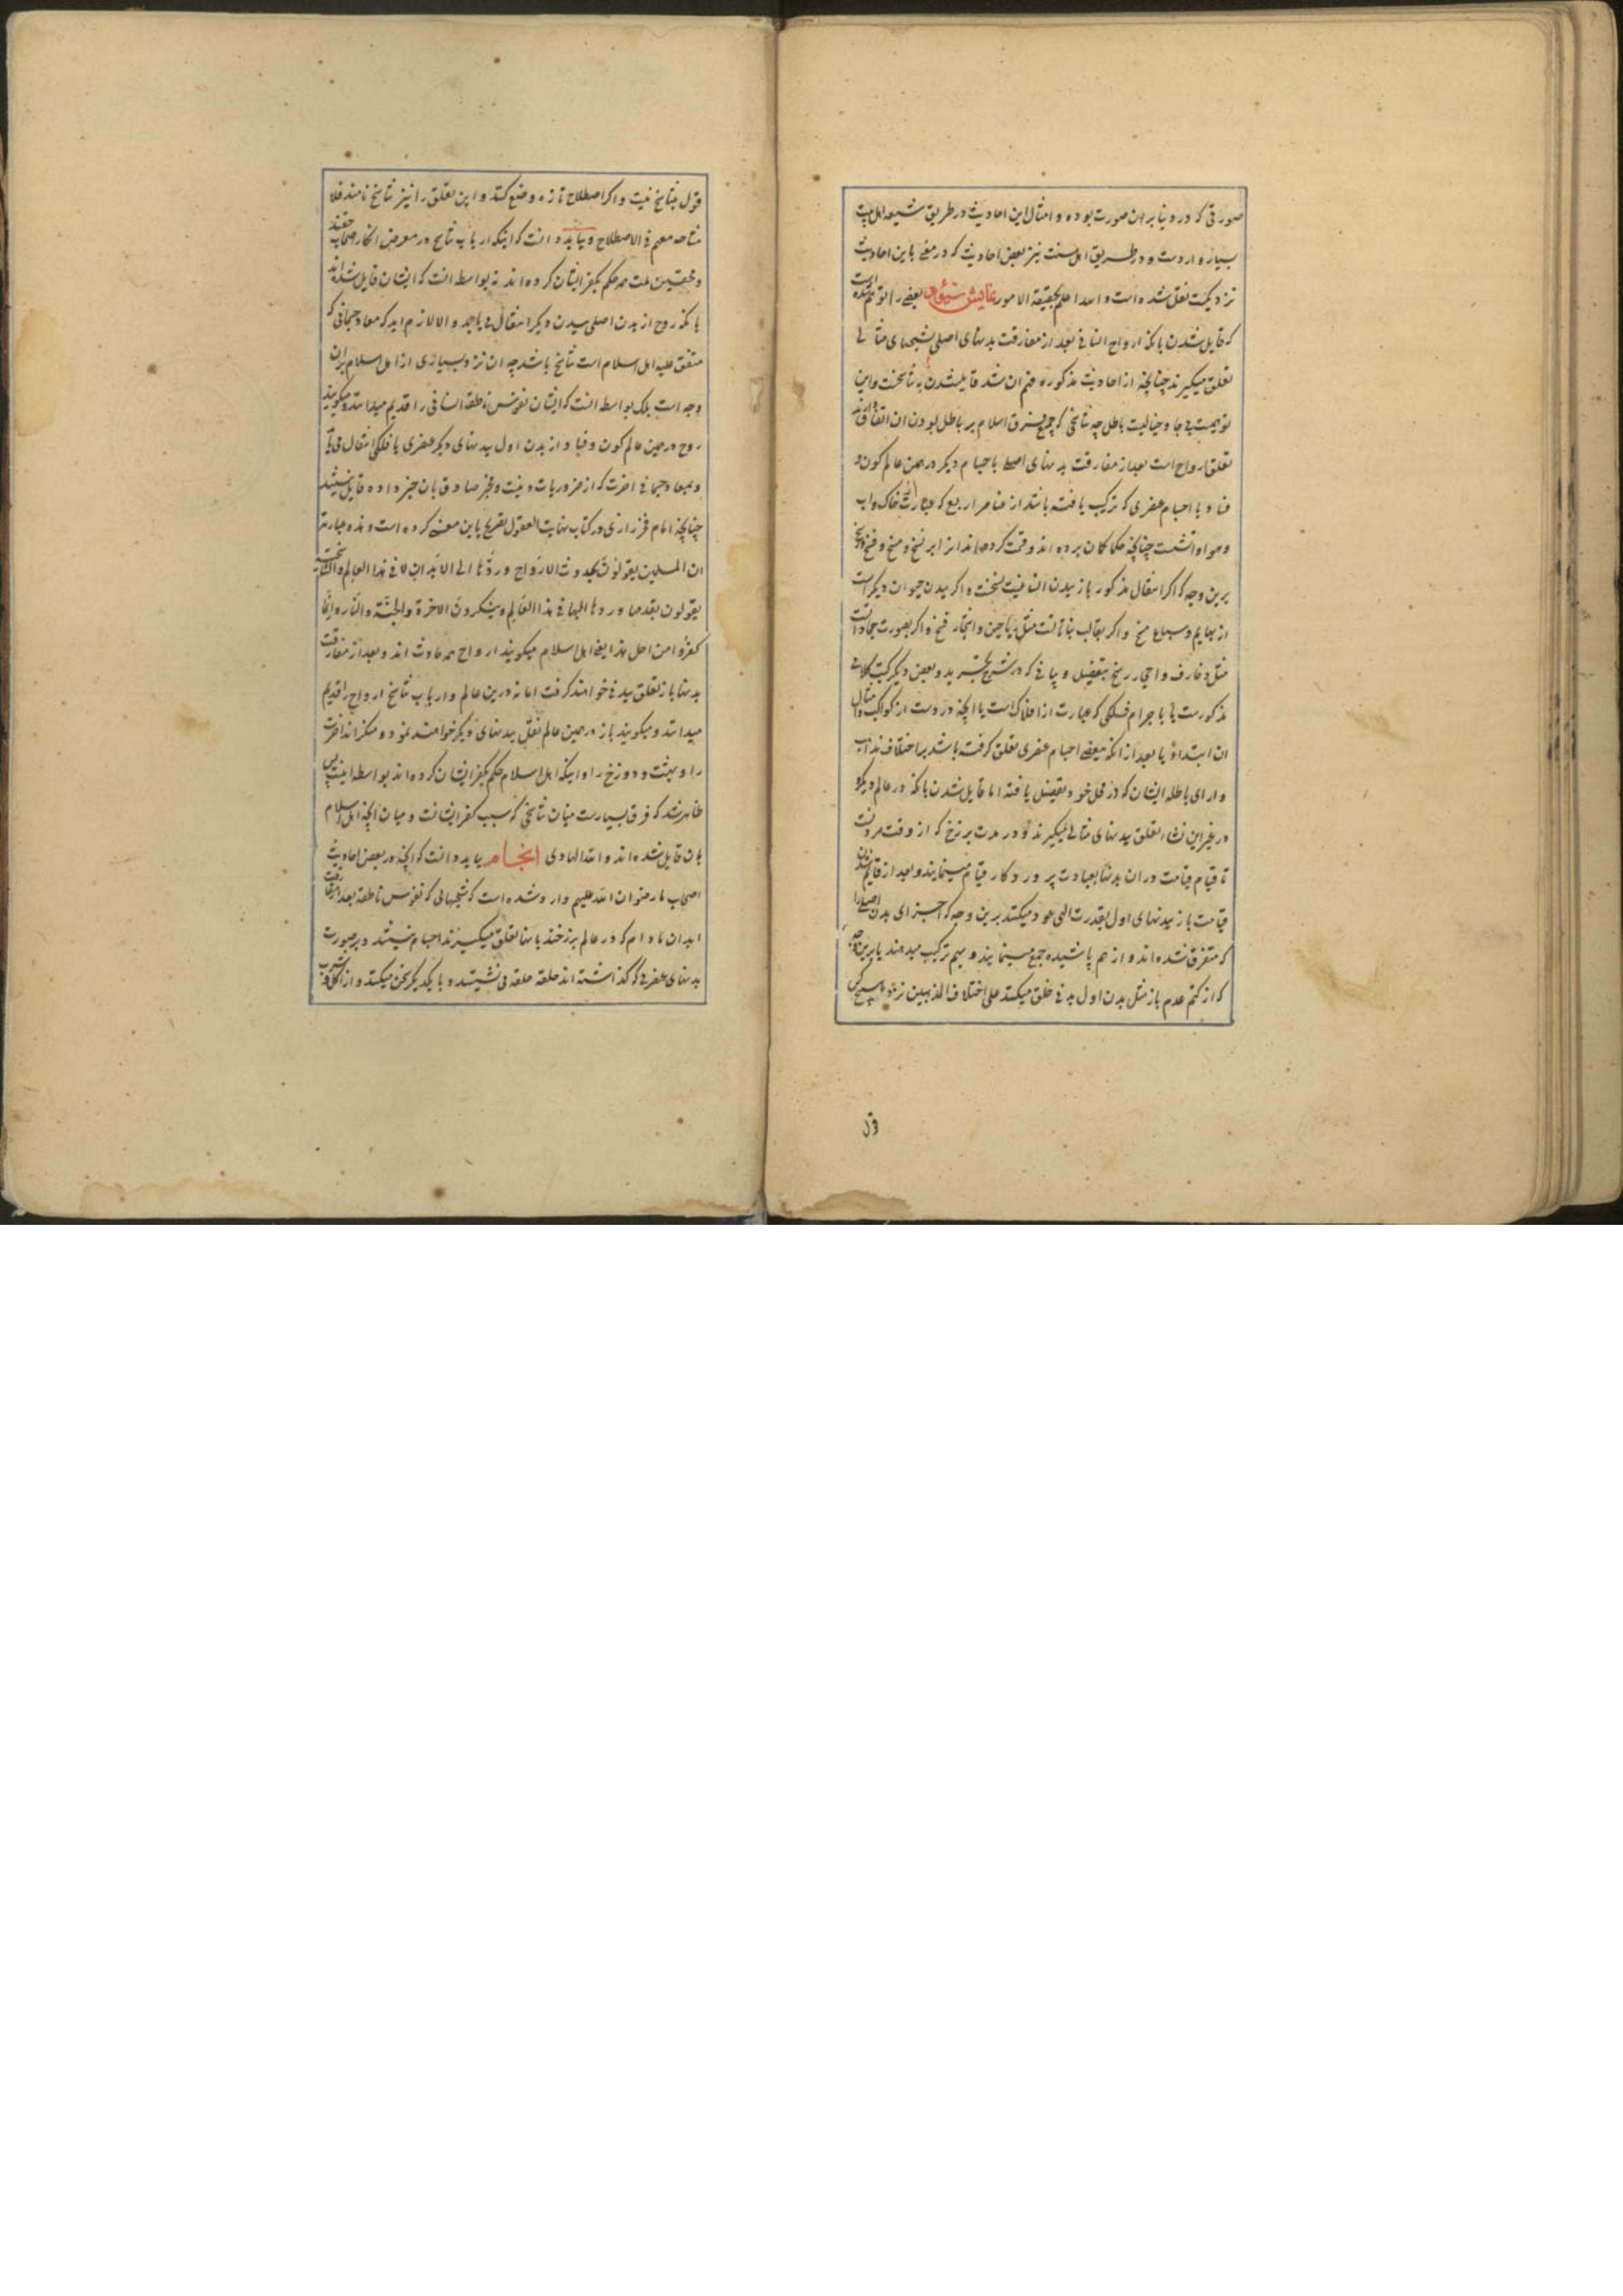 صورتی که در دنیا بر ان صورت بوده و امثال این احادیث در طریق شیعه اهل بیت
بسیار واردست و در طریق اهل سنت نیز بعضی احادیث که در معنی باین احادیث
نزدیکست نقل شده است و الله اعلم بحقیقة الامور نمایش بعضی را توهم شده است
که قایل شدن بانکه ارواح انسانی بعد از مفارقت بدنهای اصلی بشبحهای مثالی
تعلق میگیرند چنانچه از احادیث مذکوره فهم ان شد قایل شدن به تناسخست و این
توهمیست بی جا و خیالیست باطل چه تناسخی که جمیع فرق اسلام بر باطل بودن ان اتفاق دارند
تعلق ارواح است بعد از مفارقت بدنهای اصلی باجسام دیگر در همین عالم کون و
فساد یا اجسام عنصری که ترکیب یافته باشند از عناصر اربع که عبارت از خاک و اب
و هوا و اتشست چنانچه حکما کمان برده اند و قسمت کرده اند انرا بر نسخ و مسخ و فسخ و رسخ
برین وجه که اکر انتقال مذکور باز ببدن انسانیست نسخست و اکر ببدن حیوان دیکر است
از بهایم و سباع مسخ و اکر بقالب نباتاتست مثل ریاحین و اشجار فسخ و اکر بصورت جماداتست
مثل زخارف و احجار رسخ بتفصیل و بیانی که در شرح تجرید و بعضی دیکر کتب کلامی
مذکورست یا باجرام فلکی که عبارت از افلاک است یا انچه در وست از کواکب و امثال
ان ابتداءً یا بعد از انکه ببعضی اجسام عنصری تعلق کرفته باشد بر اختلاف مذاهب
و ارای باطله ایشان که در محل خود تفصیل یافته اما قایل شدن بانکه در عالم دیکر و
در غیر این نشاء تعلق ببدنهای مثالی میگیرند و در مدت برزخ که از وقت مردنست
تا قیام قیامت در ان بدنها بعبادت پروردکار قیام مینمایند و بعد از قایم شدن
قیامت باز ببدنهای اول بقدرت الهی عود میکنند برین وجه که اجزای بدن اصلی را
که متفرق شده اند و از هم پاشیده جمع مینمایند و بهم ترکیب میدهند یا برین وجه
که از کتم عدم باز مثل بدن اول بدنی خلق میکنند علی اختلاف المذهبین نزد هیچ کس
قول
قول بتناسخ نیست و اکر اصطلاح تازه وضع کنند و این تعلق را نیز تناسخ نامند فلا
مناحه معهم فی الاصطلاح و بباید دانست که اینکه ارباب تناسخ در معرض انکار
و محققین ملت همه حکم بکفر ایشان کرده اند نه بواسطه انست که ایشان قایل شده اند
بانکه روح از بدن اصلی ببدن دیکر انتقال می یابد و الا لازم اید که معاد جسمانی که
متفق علیه اهل اسلام است تناسخ باشد چه ان نزد بسیاری از اهل اسلام بران
وجه است بلکه بواسطه انست که ایشان نفوس ناطقه انسانی را قدیم میدانند و میکویند
روح در همین عالم کون و فساد از بدن اول ببدنهای دیکر عنصری یا فلکی انتقال می یابد
و بمعاد جسمانی اخرت که از ضروریات دینست و مخبر صادق بان خبر داده قایل نیستند
چنانچه امام فخر رازی در کتاب نهایت العقول تصریح باین معنی کرده است و هذه عبارته
ان المسلمین یقولون بحدوث الارواح و ردّها الی الابدان لا فی هذا العالم و التناسخیة
یقولون بقدمها و ردها الیها فی هذا العالم و ینکرون الاخرة و الجنّة و النّار و انّما
کفروا من اجل هذا یعنی اهل اسلام میکویند ارواح همه حادث اند و بعد از مفارقت
بدنها باز تعلق ببدنی خواهند کرفت اما نه درین عالم و ارباب تناسخ ارواح را قدیم
میدانند و میکویند باز در همین عالم تعلق ببدنهای دیکر خواهند نمود و منکرند اخرت
را و بهشت و دوزخ را و اینکه اهل اسلام حکم بکفر ایشان کرده اند بواسطه اینست پس
ظاهر شد که فرق بسیارست میان تناسخی که سبب کفر ایشانست و میان انچه اهل اسلام
بان قایل شده اند و الله الهادی انجام بباید دانست که انچه در بعضی احادیث
اصحاب ما رضوان الله علیهم وارد شده است که شبحهائی که نفوس ناطقه بعد از مفارقت
ابدان مادام که در عالم برزخند بانها تعلق میکیرند اجسام نیستند و بر صورت
بدنهای عنصری که کذاشته اند حلقه حلقه می نشینند و با یکدیکر سخن میکنند و از اکل و شرب